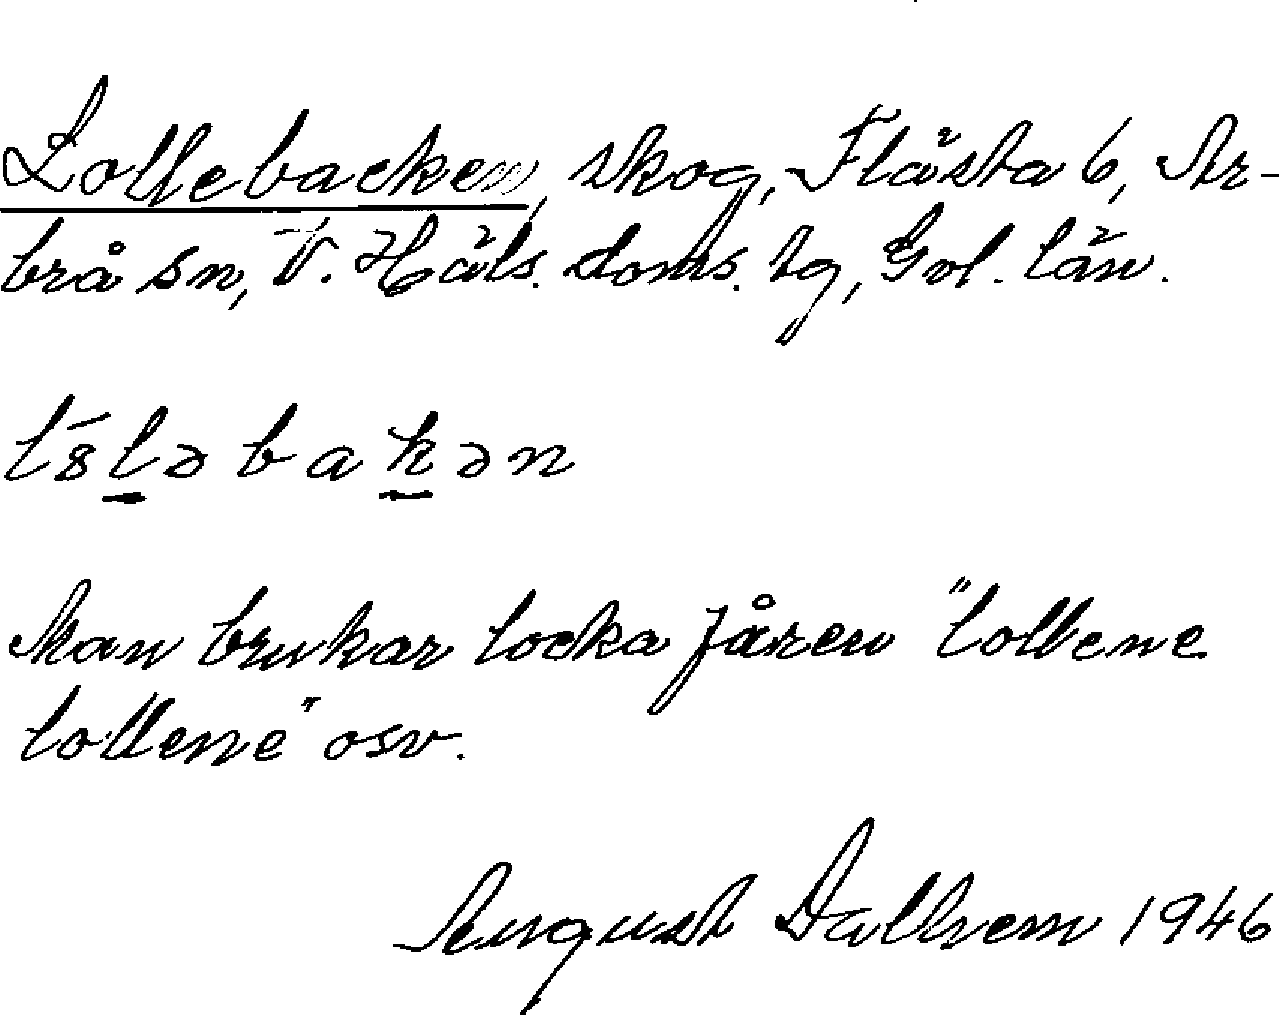 Lollebacken, skog, Flästa 6, Ar-
brå sn, V. Häls. doms. tg, Gvl. län.
ĺ8ləbakən
Man brukar locka fåren "lollene
lollene" osv.
August Dalhem 1946